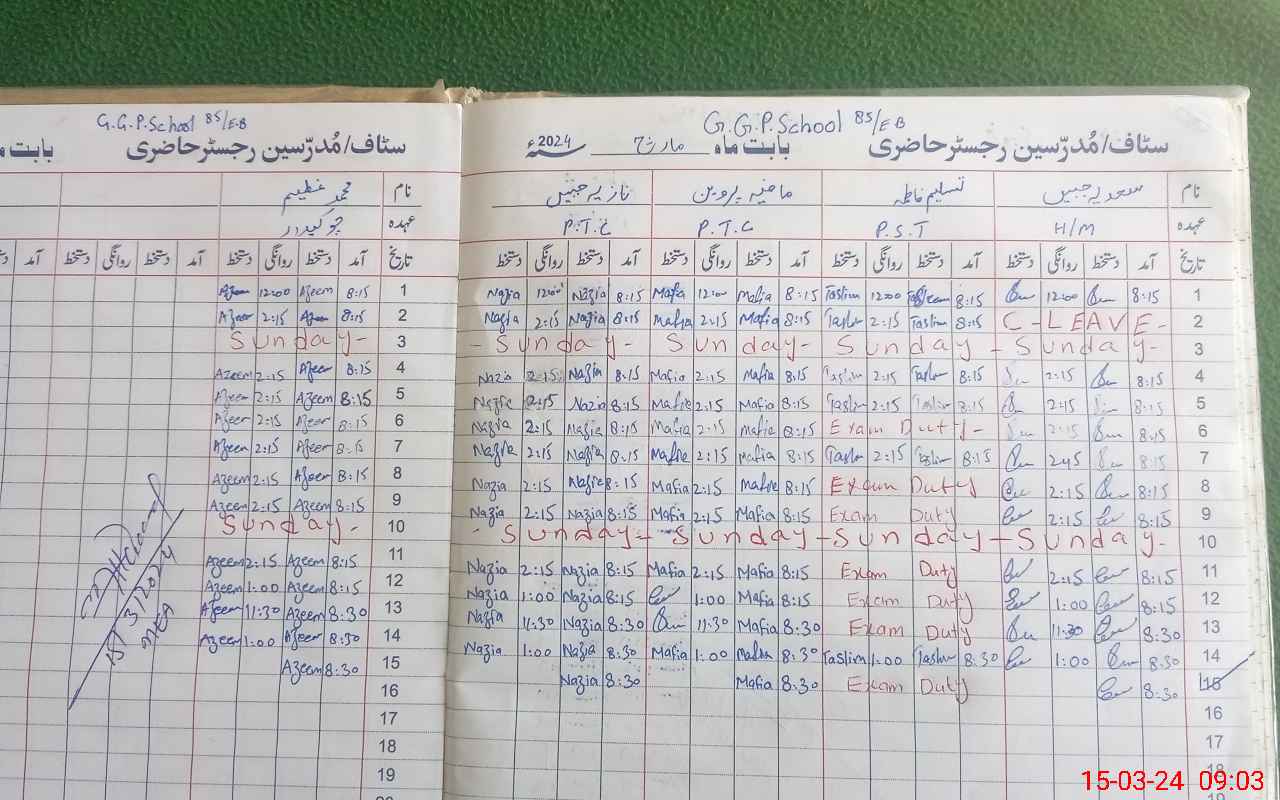 G.G.P.School 85/E-B
سٹاف/مُدرّسین رجسٹر حاضری
بابت ما
نام محمد عظیم
عہدہ چوکیدار
تاریخ آمد دستخط روانگی دستخط آمد دستخط روانگی دستخط آمد
1 8:15 Azeem 12:00 Azeem
2 8:15 Azeem 2:15 Azeem
3 Sunday-
4 8:15 Azeem 2:15 Azeem
5 8:15 Azeem 2:15 Azeem
6 8:15 Azeem 2:15 Azeem
7 8:15 Azeem 2:15 Azeem
8 8:15 Azeem 2:15 Azeem
9 8:15 Azeem 2:15 Azeem
10 Sunday-
11 8:15 Azeem 2:15 Azeem
12 8:15 Azeem 1:00 Azeem
13 8:30 Azeem 11:30 Azeem
14 8:30 Azeem 1:00 Azeem
15 8:30 Azeem
16
17
18
19
15/3/2024
MEA
G.G.P.School 85/E-B
سٹاف/مُدرّسین رجسٹر حاضری بابت ماہ مارچ سنہ 2024ء
نام سعدیہ جبیں تسلیم فاطمہ مافیہ پروین نازیہ جبیں
عہدہ H/M P.S.T P.T.C P.T.C
تاریخ آمد دستخط روانگی دستخط آمد دستخط روانگی دستخط آمد دستخط روانگی دستخط آمد دستخط روانگی دستخط
1 8:15 12:00 8:15 Tasleem 12:00 Taslim 8:15 Mafia 12:00 Mafia 8:15 Nazia 12:00 Nazia
2 C-LEAVE- 8:15 Taslim 2:15 Taslim 8:15 Mafia 2:15 Mafia 8:15 Nazia 2:15 Nazia
3 -Sunday- Sunday- Sunday -Sunday-
4 8:15 2:15 8:15 Taslim 2:15 Taslim 8:15 Mafia 2:15 Mafia 8:15 Nazia 2:15 Nazia
5 8:15 2:15 8:15 Taslim 2:15 Taslim 8:15 Mafia 2:15 Mafia 8:15 Nazia 2:15 Nazia
6 8:15 2:15 Exam Duty- 8:15 Mafia 2:15 Mafia 8:15 Nazia 2:15 Nazia
7 8:15 2:45 8:15 Taslim 2:15 Taslim 8:15 Mafia 2:15 Mafia 8:15 Nazia 2:15 Nazia
8 8:15 2:15 Exam Duty 8:15 Mafia 2:15 Mafia 8:15 Nazia 2:15 Nazia
9 8:15 2:15 Exam Duty 8:15 Mafia 2:15 Mafia 8:15 Nazia 2:15 Nazia
10 - Sunday - Sunday - Sunday - Sunday-
11 8:15 2:15 Exam Duty 8:15 Mafia 2:15 Mafia 8:15 Nazia 2:15 Nazia
12 8:15 1:00 Exam Duty 8:15 Mafia 1:00 8:15 Nazia 1:00 Nazia
13 8:30 11:30 Exam Duty 8:30 Mafia 11:30 8:30 Nazia 11:30 Nazia
14 8:30 1:00 8:30 Taslim 1:00 Taslim 8:30 Mafia 1:00 Mafia 8:30 Nazia 1:00 Nazia
15 8:30 Exam Duty 8:30 Mafia 8:30 Nazia
16
17
18
19
15-03-24 09:03